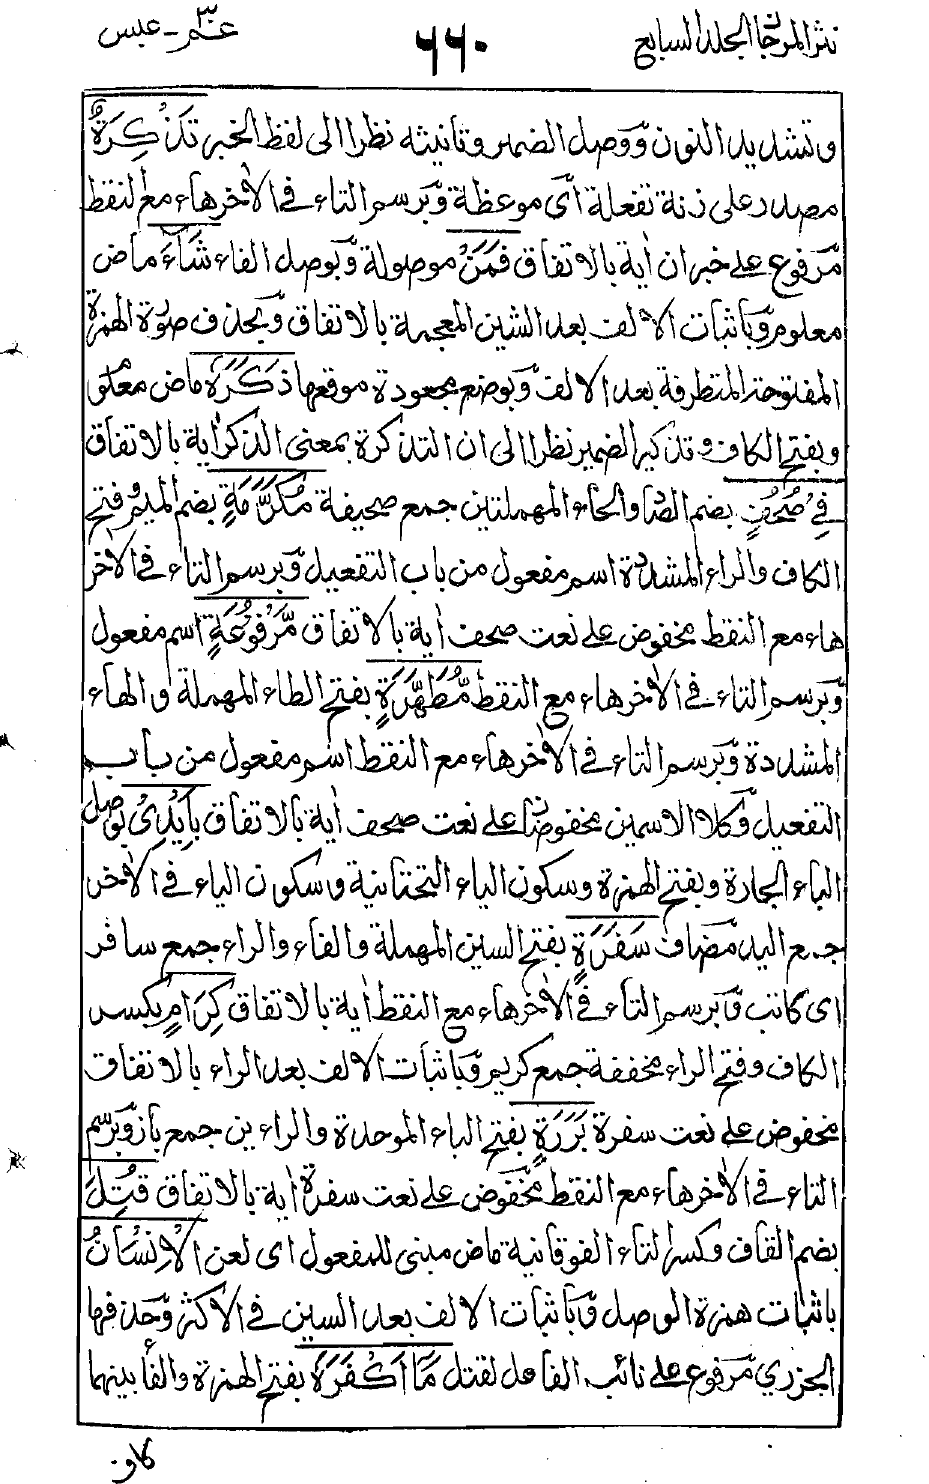 نثر المرجان الجلد السابع
٦٦٠
عم٣٠ - عبس
وتشديد النون ووصل الضمير وتانيثه نظرا الى لفظ الخبر تَذْكِرَةٌ
مصدر على زنة تفعلة اى موعظة وبرسم التاء فى الاٰخر هاء مع النقط
مرفوع على خبر ان اٰية بالاتفاق فَمَنْ موصولة وبوصل الفاء شَآءَ ماض
معلوم وباثبات الالف بعد الشين المعجمة بالاتفاق وبحذف صورة الهمزة
المفتوحة المتطرفة بعد الالف وبوضع مجعودة موقعها ذَكَرَهٗ ماض معلوم
وبفتح الكاف وتذكير الضمير نظرا الى ان التذكرة بمعنى الذكر اٰية بالاتفاق
فِيْ صُحُفٍ بضم الصاد والحاء المهملتين جمع صحيفة مُكَرَّمَةٍ بضم الميم وفتح
الكاف والراء المشددة اسم مفعول من باب التفعيل وبرسم التاء فى الاٰخر
هاء مع النقط مخفوض على نعت صحف اٰية بالاتفاق مَرْفُوْعَةٍ اسم مفعول
وبرسم التاء فى الاٰخر هاء مع النقط مُطَهَّرَةٍ بفتح الطاء المهملة والهاء
المشددة وبرسم التاء فى الاٰخر هاء مع النقط اسم مفعول من باب
التفعيل وكلا الاسمين مخفوضان على نعت صحف اٰية بالاتفاق بِاَيْدِيْ بوصل
الباء الجارة وبفتح الهمزة وسكون الياء التحتانية وسكون الياء فى الاٰخر
جمع اليد مضاف سَفَرَةٍ بفتح السين المهملة والفاء والراء جمع سافر
اى كاتب وبرسم التاء فى الاٰخر هاء مع النقط اٰية بالاتفاق كِرَامٍ بكسر
الكاف وفتح الراء مخففة جمع كريم وباثبات الالف بعد الراء بالاتفاق
مخفوض على نعت سفرة بَرَرَةٍ بفتح الباء الموحدة والراءين جمع بار وبرسم
التاء فى الاٰخر هاء مع النقط مخفوض على نعت سفرة اٰية بالاتفاق قُتِلَ
بضم القاف وكسر التاء الفوقانية ماض مبنى للمفعول اى لعن الْاِنْسَانُ
باثبات همزة الوصل وباثبات الالف بعد السين فى الاكثر وحذفها
الجزري مرفوع على نائب الفاعل لقتل مَا اَكْفَرَهٗ بفتح الهمزة والفاء بينهما
كاف